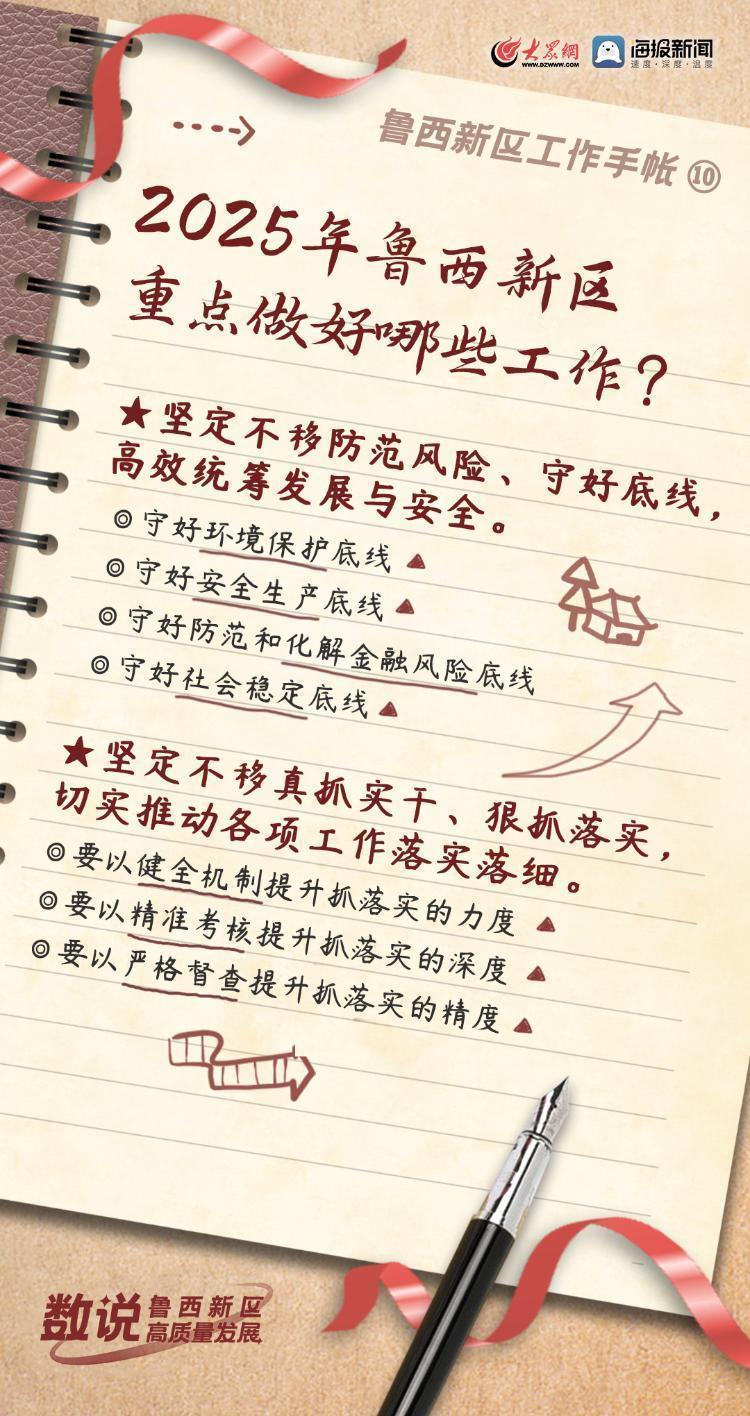 大众網
WWW.DZWWW.COM
海报新闻
速度·深度·温度
鲁西新区工作手帐⑩
2025年鲁西新区
重点做好哪些工作？
★坚定不移防范风险、守好底线，
高效统筹发展与安全。
◎守好环境保护底线▲
◎守好安全生产底线▲
◎守好防范和化解金融风险底线
◎守好社会稳定底线▲
★坚定不移真抓实干、狠抓落实，
切实推动各项工作落实落细。
◎要以健全机制提升抓落实的力度▲
◎要以精准考核提升抓落实的深度▲
◎要以严格督查提升抓落实的精度▲
数说
鲁西新区
高质量发展